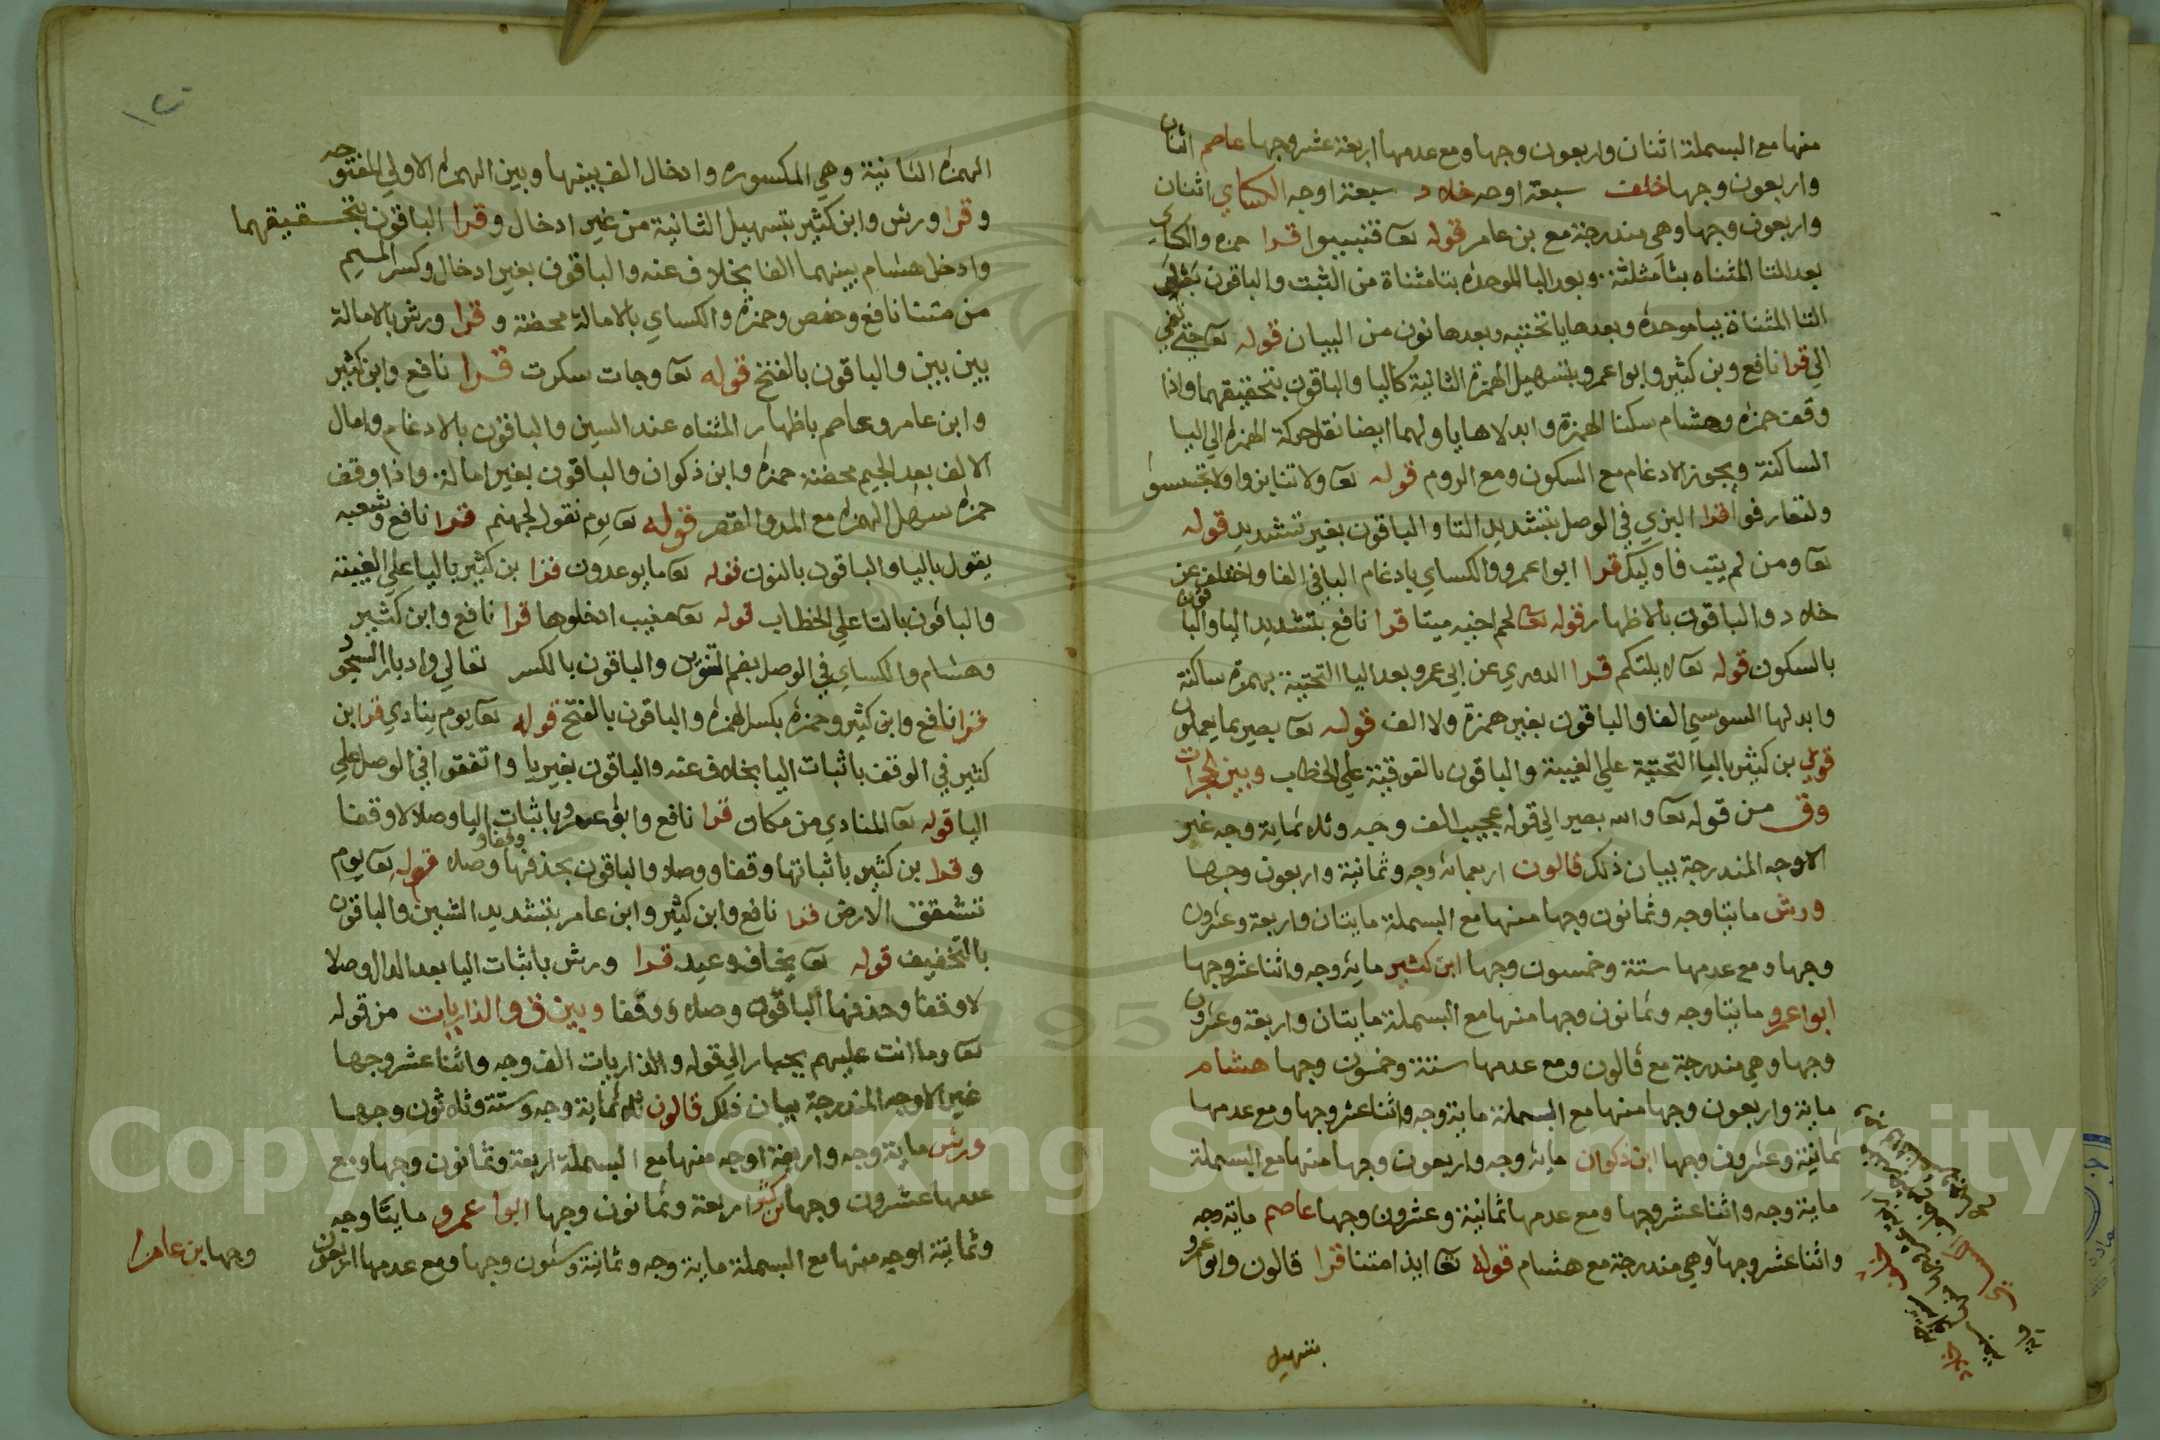 منها مع البسملة اثنان واربعون وجها ومع عدمها اربعة عشر وجها عاصم اثنان
واربعون وجها خلف سبعة اوجه خلاد سبعة اوجه الكساي اثنان
واربعون وجها وهي مندرجة مع بن عامر قوله تعا فتبينوا قرا حمزه والكساي
بعد التا المثناه بثا مثلثة وبعد البا الموحده بتا مثناة من الثبت والباقون بعد
التا المثناة ببا موحده وبعدها يا تحتيه وبعدها نون من البيان قوله تعا حتي تفي
الي قرا نافع وبن كثير وابو عمرو بتسهيل الهمزة الثانية كاليا والباقون بتحقيقهما واذا
وقف حمزه وهشام سكنا الهمزة وابدلاها يا ولهما ايضا نقل حركة الهمزه الي اليا
الساكنة ويجوز الادغام مع السكون ومع الروم قوله تعا ولا تنابزوا ولا تجسسوا
ولتعارفوا قرا البزي في الوصل بتشديد التا والباقون بغير تشديد قوله
تعا ومن لم يتب فاوليك قرا ابوا عمرو والكساي بادغام البا في الفا واختلف عن
خلاد والباقون بالاظهار قوله تعا لحم اخيه ميتا قرا نافع بتشديد اليا والباقون
بالسكون قوله تعا لا يلتكم قرا الدوري عن ابي عمرو بعد اليا التحتية بهمزة ساكنة
وابدلها السوسي الفا والباقون بغير همزة ولا الف قوله تعا بصير بما يعملون
قرا بن كثير باليا التحتية علي الغيبة والباقون بالفوقية علي الخطاب وبين الحجرات
وق من قوله تعا والله بصير الي قوله عجيب الف وجه وثلاثماية وجه غير
الاوجه المندرجة بيان ذلك قالون اربعمائه وجه وثمانية واربعون وجها
ورش مايتا وجه وثمانون وجها منها مع البسملة مايتان واربعة وعشرون
وجها ومع عدمها ستة وخمسون وجها ابن كثير ماية وجه واثنا عشر وجها
ابوا عمرو مايتا وجه وثمانون وجها منها مع البسملة مايتان واربعة وعشرون
وجها وهي مندرجة مع قالون ومع عدمها ستة وخمسون وجها هشام
ماية واربعون وجها منها مع البسملة ماية وجه واثنا عشر وجها ومع عدمها
ثمانية وعشرون وجها ابن ذكوان ماية وجه واربعون وجها منها مع البسملة
ماية وجه واثنا عشر وجها ومع عدمها ثمانية وعشرون وجها عاصم ماية وجه
واثنا عشر وجها وهي مندرجة مع هشام قوله تعا ايذا متنا قرا قالون وابو عمرو
بتسهيل
الهمزة الثانية وهي المكسوره وادخال الف بينها وبين الهمزه الاولي المفتوحه
وقرا ورش وابن كثير بتسهيل الثانية من غير ادخال وقرا الباقون بتحقيقهما
وادخل هشام بينهما الفا بخلاف عنه والباقون بغير ادخال وكسر الميم
من متنا نافع وحفص وحمزة والكساي بالامالة محضة وقرا ورش بالامالة
بين بين والباقون بالفتح قوله تعا وجات سكرت قرا نافع وابن كثير
وابن عامر وعاصم باظهار المثناه عند السين والباقون بالادغام وامال
الالف بعد الجيم محضة حمزة وابن ذكوان والباقون بغير امالة واذا وقف
حمزه سهل الهمزه مع المد والقصر قوله تعا يوم نقول لجهنم قرا نافع وشعبه
يقول باليا والباقون بالنون قوله تعا ما يوعدون قرا بن كثير باليا علي الغيبة
والباقون بالتا علي الخطاب قوله تعا منيب ادخلوها قرا نافع وابن كثير
وهشام والكساي في الوصل بضم التنوين والباقون بالكسر تعالي وادبار السجود
قرا نافع وابن كثير وحمزة بكسر الهمزه والباقون بالفتح قوله تعا يوم ينادي قرا ابن
كثير في الوقف باثبات اليا بخلاف عنه والباقون بغير يا واتفقوا في الوصل علي
اليا قوله تعا المنادي من مكان قرا نافع وابو عمرو باثبات اليا وصلا لا وقفا
وقرا بن كثير باثباتها وقفا ووصلا والباقون بحذفها وقفا و وصلا قوله تعا يوم
تشقق الارض قرا نافع وابن كثير وابن عامر بتشديد الشين والباقون
بالتخفيف قوله تعا يخاف وعيد قرا ورش باثبات اليا بعد الدال وصلا
لا وقفا وحذفها الباقون وصلا ووقفا وبين ق والذاريات من قوله
تعا وما انت عليهم بجبار الي قوله والذاريات الف وجه واثنا عشر وجها
غير الاوجه المندرجة بيان ذلك قالون ثلاثماية وجه وستة وثلاثون وجها
ورش ماية وجه واربعة اوجه منها مع البسملة اربعة وثمانون وجها ومع
عدمها عشرون وجها بن كثير اربعة وثمانون وجها ابوا عمرو مايتا وجه
وثمانية اوجه منها مع البسملة ماية وجه وثمانية وستون وجها ومع عدمها اربعون وجها بن عامر
Copyright © King Saud University
1957